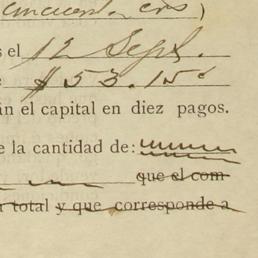 s el 12 Sept.
$53.15¢
án el capital en diez pagos.
e la cantidad de:
que el com
total y que corresponde a